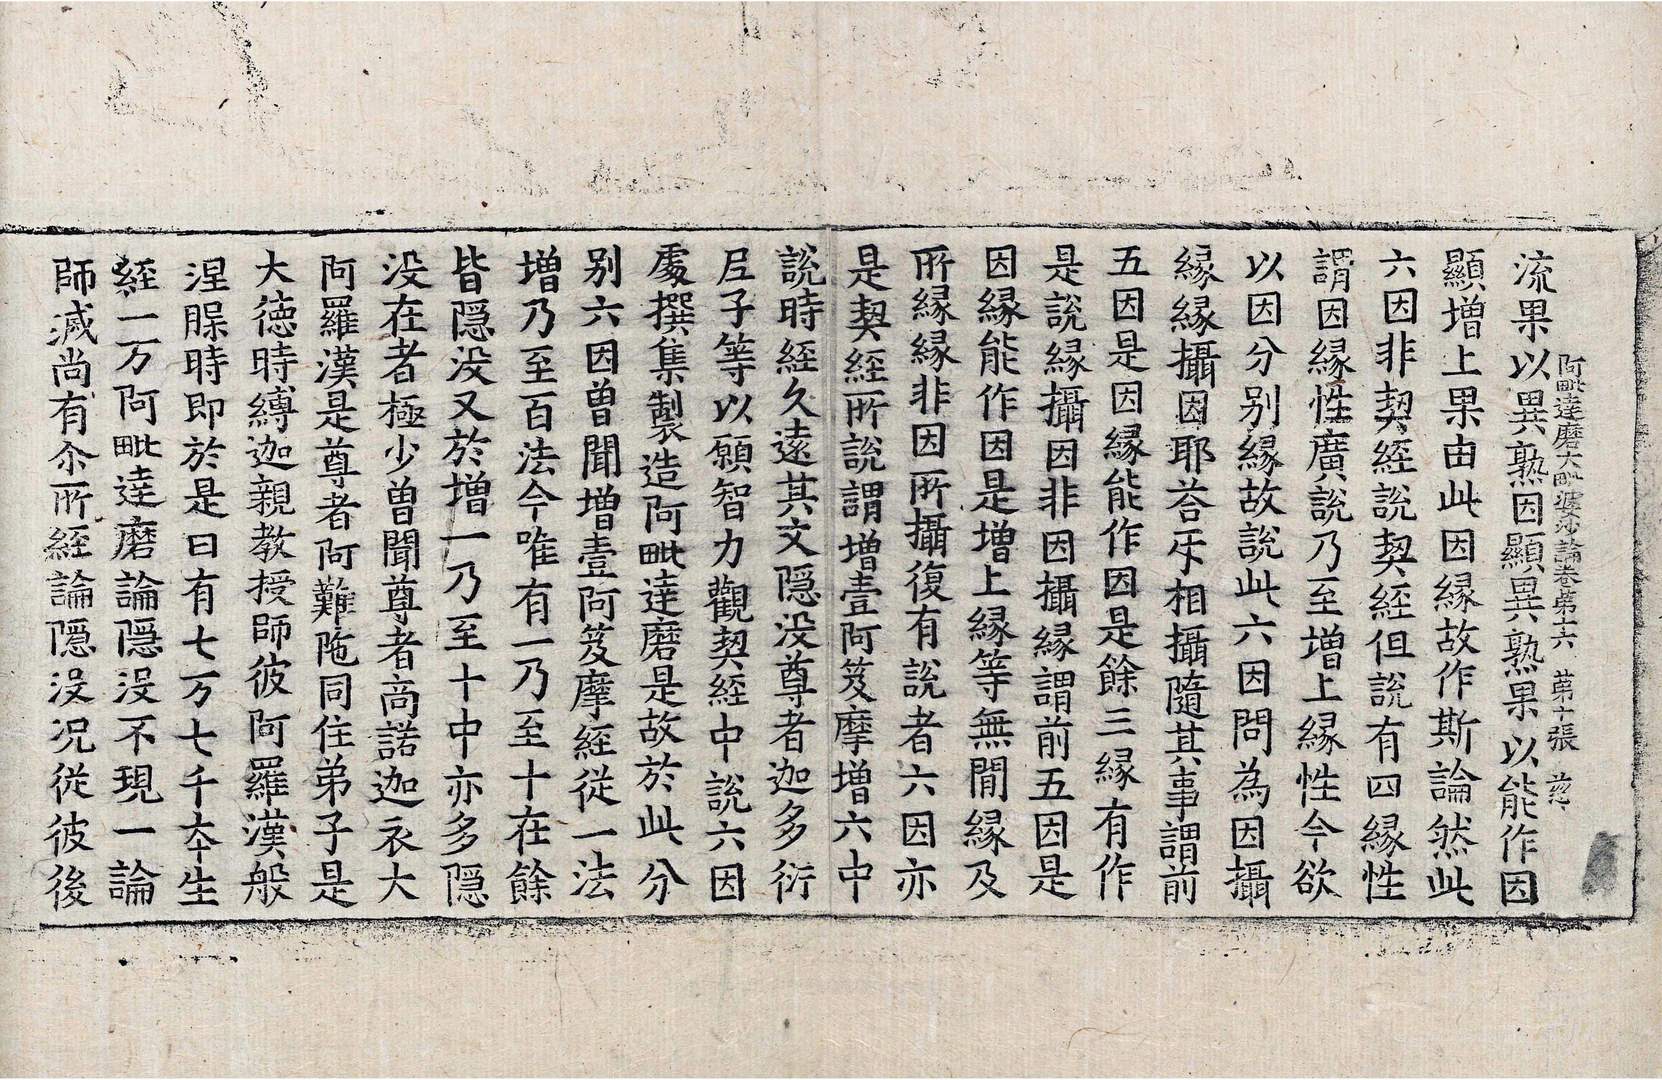 阿毗達磨大毗婆沙論卷第十六　第十張　慈
流果以異熟因顯異熟果以能作因
顯增上果由此因緣故作斯論然此
六因非契經說契經但說有四緣性
謂因緣性廣說乃至增上緣性今欲
以因分別緣故說此六因問為因攝
緣緣攝因耶荅互相攝隨其事謂前
五因是因緣能作因是餘三緣有作
是說緣攝因非因攝緣謂前五因是
因緣能作因是增上緣等無閒緣及
所緣緣非因所攝復有說者六因亦
是契經所說謂增壹阿笈摩增六中
說時經久遠其文隱没尊者迦多衍
尼子等以願智力觀契經中說六因
處撰集製造阿毗達磨是故於此分
别六因曾聞增壹阿笈摩經從一法
增乃至百法今唯有一乃至十在餘
皆隱没又於增一乃至十中亦多隱
没在者極少曾聞尊者商諾迦衣大
阿羅漢是尊者阿難陁同住弟子是
大德時縛迦親教授師彼阿羅漢般
涅槃時即於是日有七万七千本生
經一万阿毗達磨論隱没不現一論
師滅尚有尒所經論隱没况從彼後